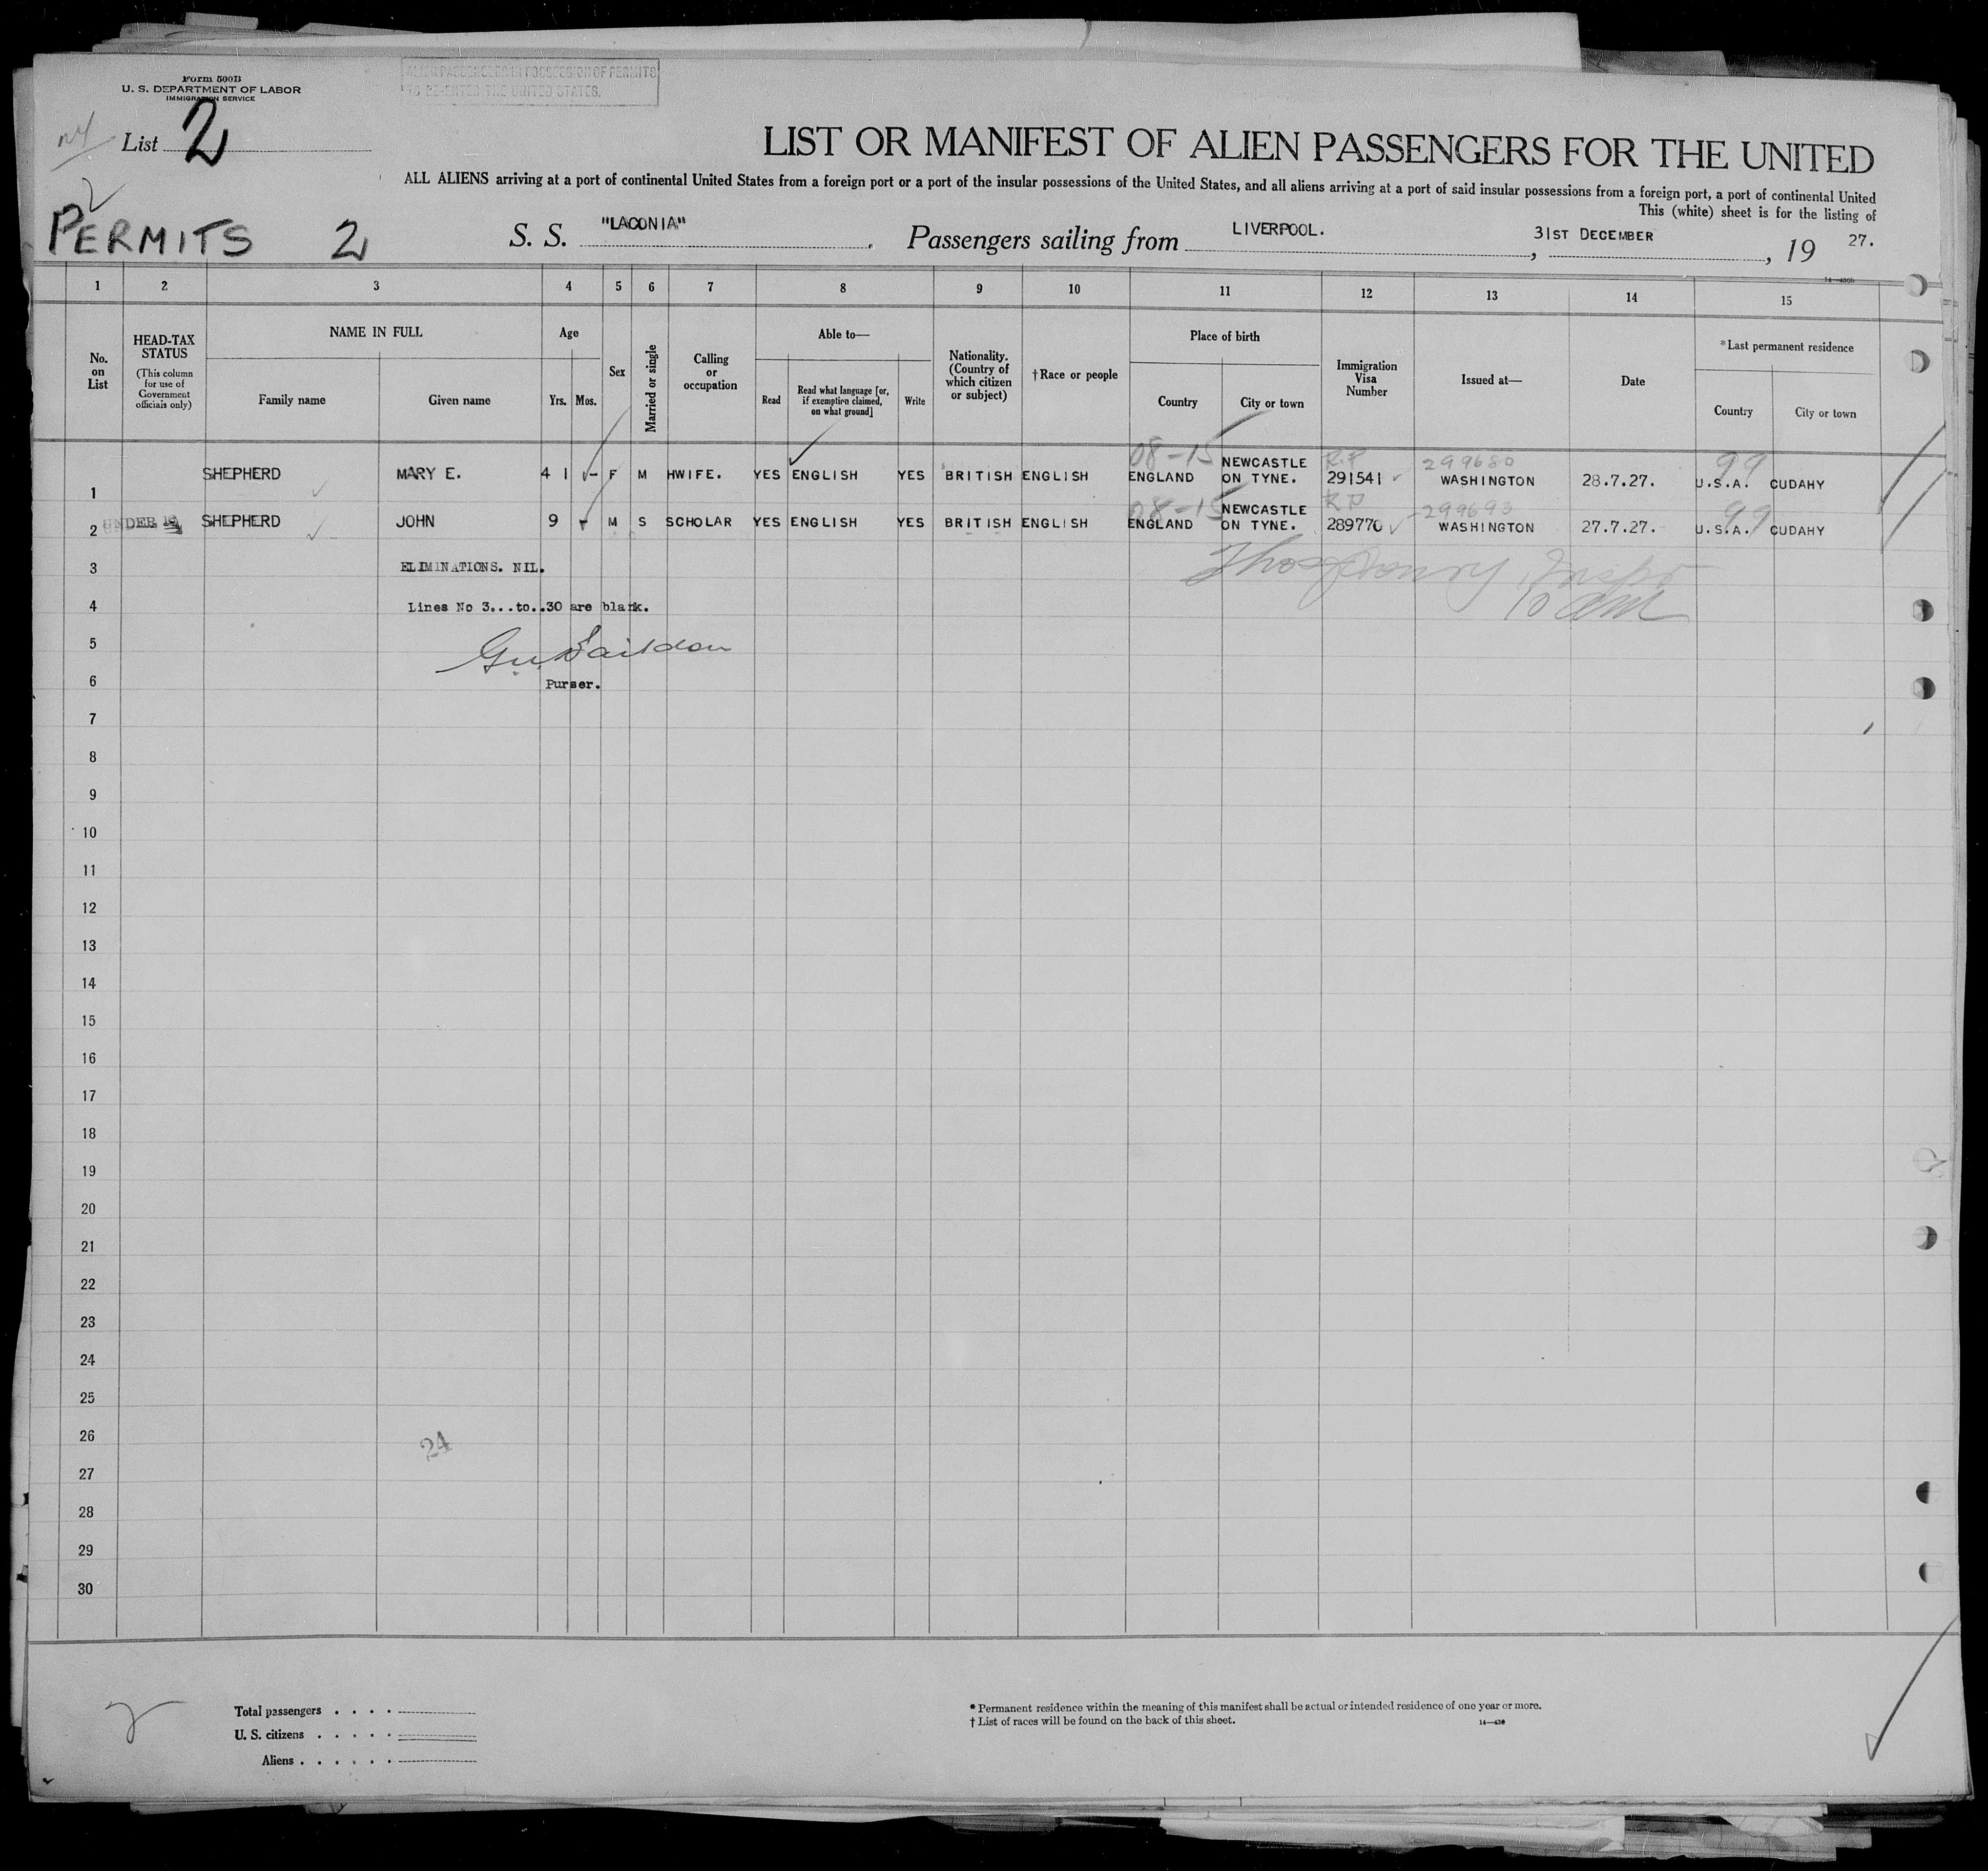 Form 500B
U. S. DEPARTMENT OF LABOR
IMMIGRATION SERVICE
ALIEN PASSENGERS IN POSSESSION OF PERMITS
TO RE-ENTER THE UNITED STATES.
List 2
LIST OR MANIFEST OF ALIEN PASSENGERS FOR THE UNITED
ALL ALIENS arriving at a port of continental United States from a foreign port or a port of the insular possessions of the United States, and all aliens arriving at a port of said insular possessions from a foreign port, a port of continental United
This (white) sheet is for the listing of
PERMITS 2
S. S. "LACONIA" . Passengers sailing from LIVERPOOL. , 31ST DECEMBER , 19 27.
1 2 3 4 5 6 7 8 9 10 11 12 13 14 15
No. on List
HEAD-TAX STATUS
(This column for use of Government officials only)
NAME IN FULL
Family name
Given name
Age
Yrs. Mos.
Sex
Married or single
Calling or occupation
Able to—
Read
Read what language [or, if exemption claimed, on what ground]
Write
Nationality. (Country of which citizen or subject)
†Race or people
Place of birth
Country
City or town
Immigration Visa Number
Issued at—
Date
*Last permanent residence
Country
City or town
08-15 R.P 299680 99
1 SHEPHERD MARY E. 41 - F M HWIFE. YES ENGLISH YES BRITISH ENGLISH ENGLAND NEWCASTLE ON TYNE. 291541 WASHINGTON 28.7.27. U.S.A. CUDAHY
08-15 R P 299693 99
2 UNDER SHEPHERD JOHN 9 M S SCHOLAR YES ENGLISH YES BRITISH ENGLISH ENGLAND NEWCASTLE ON TYNE. 289770 WASHINGTON 27.7.27. U.S.A. CUDAHY
3 ELIMINATIONS. NIL.
4 Lines No 3...to..30 are blank.
5
6 Purser.
7
8
9
10
11
12
13
14
15
16
17
18
19
20
21
22
23
24
25
26
24
27
28
29
30
2
Total passengers . . . .
U. S. citizens . . . . .
Aliens . . . . . .
* Permanent residence within the meaning of this manifest shall be actual or intended residence of one year or more.
† List of races will be found on the back of this sheet.
14—430